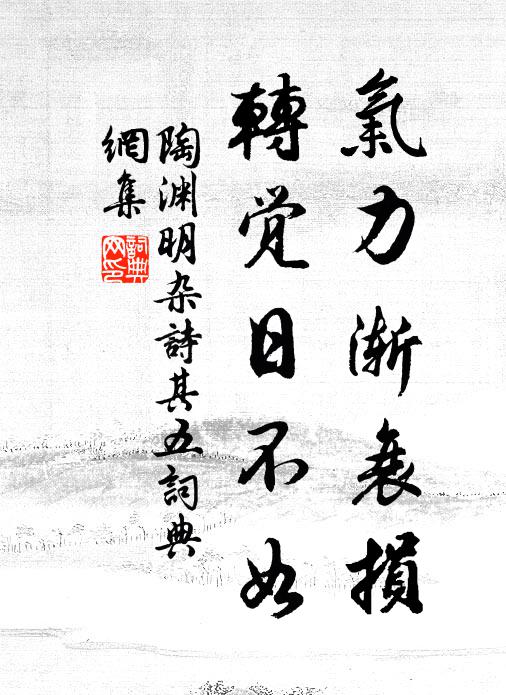 氣力渐衰損
轉觉日不如
陶渊明杂詩其五詞典
網集
詞典
网印